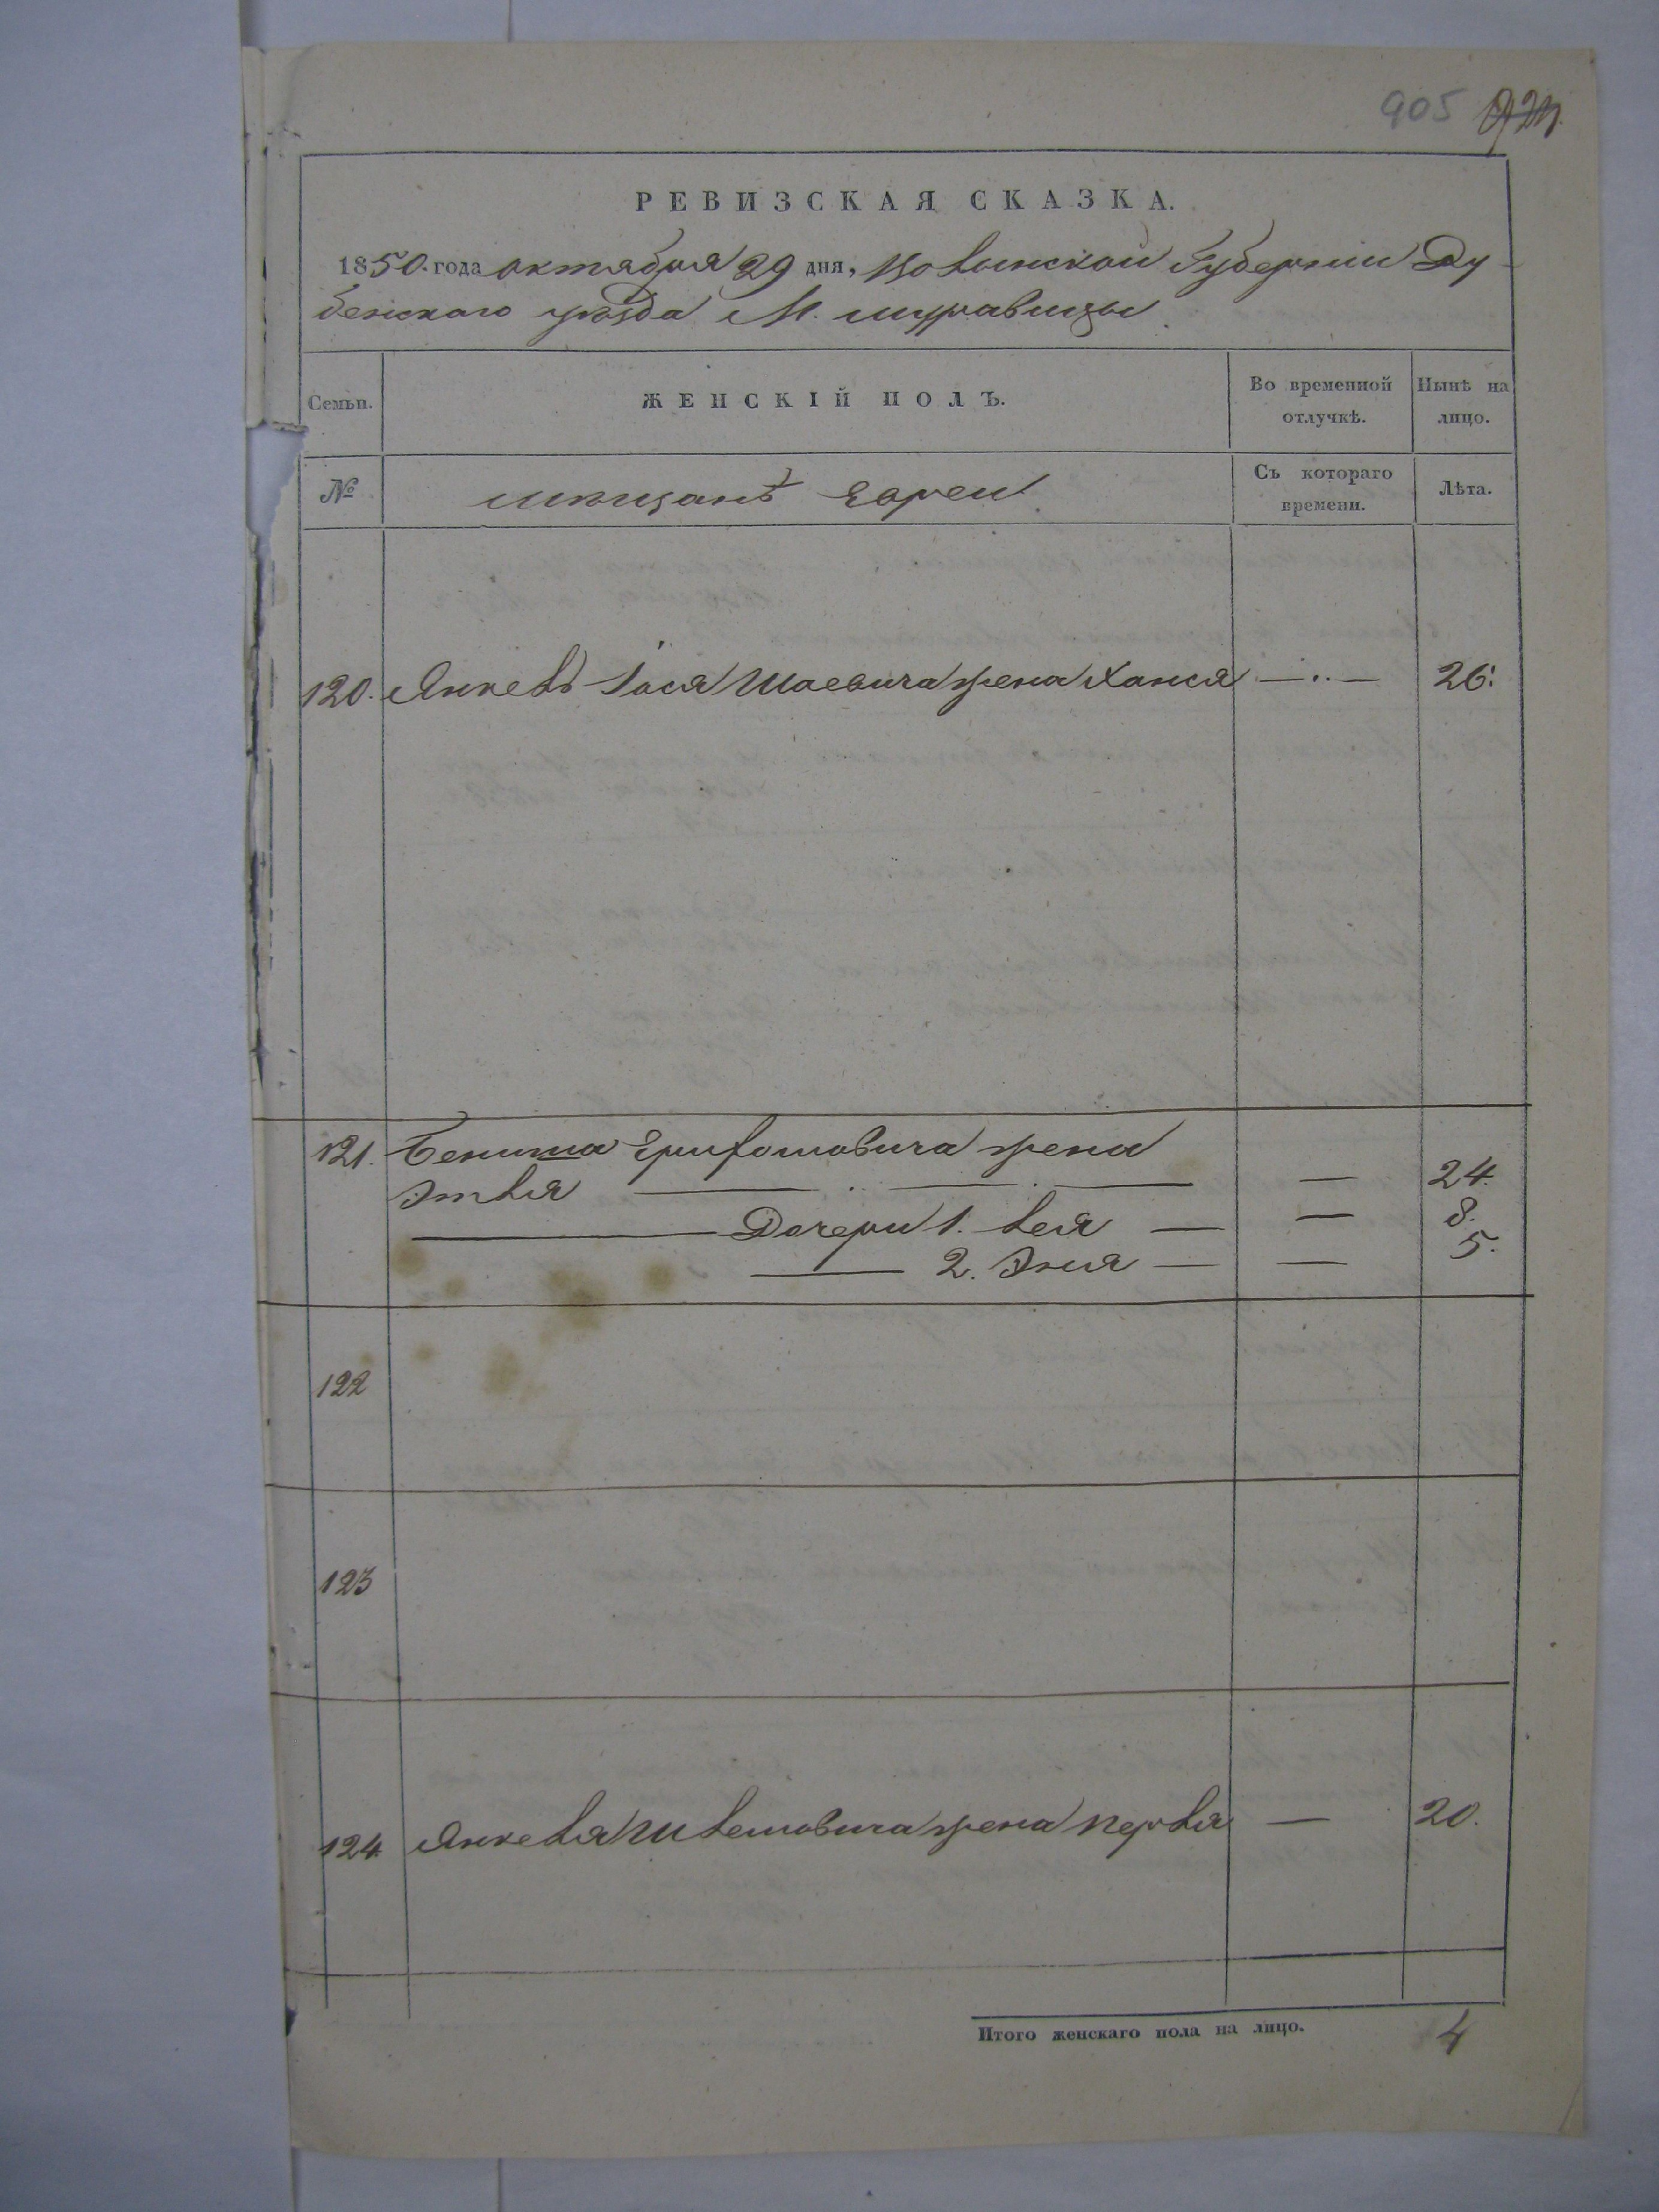 905
РЕВИЗСКАЯ СКАЗКА.
1850 года октября 29 дня, Волынской Губернiи Ду
бенскаго уѣзда М. Муравицы
Семьи.
ЖЕНСКІЙ ПОЛЪ.
Во временной отлучкѣ.
Нынѣ на лицо.
№
мѣщанъ Евреи
Съ котораго времени.
Лѣта.
120. Янкель Іося Шаевича жена Ханся — .. — 26.
121. жена
Этля — .. — . — — 24.
— Дочери 1. Лея — — 8.
— 2. Эня — — 5.
122
123
124 Янкеля жена Перля — 20.
Итого женскаго пола на лицо. 4